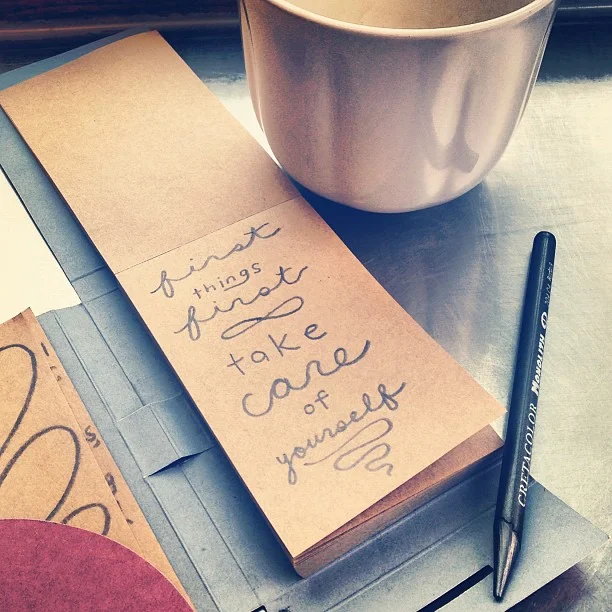 first
things
first
take
care
of
yourself
CRETACOLOR MONOLITH